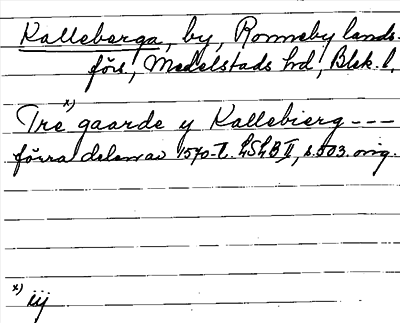 Kalleberga, by, Ronneby lands-
förs, Medelstads hd, Blek. l.
x)
Tre gaarde y Kallebierg ---
förra delen av 1570-t. LSLB II, s. 503. orig.
x) iij